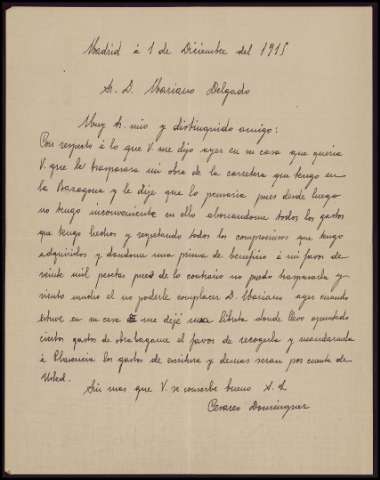 Madrid á 1 de Diciembre del 1915
S. D. Mariano Delgado
Muy S. mio y distinguido amigo:
Con respecto á lo que V me dijo ayer en su casa que queria
V. que le traspasara mi obra de la carretera que tengo en
la Maragona y le dije que lo pensaria pues desde luego
no tengo inconveniente en ello abonandome todos los gastos
que tengo hechos y respetando todos los compromisos que tengo
adquiridos y dandome una prima de beneficio á mi favor de
veinte mil pesetas pues de lo contrario no puedo traspasarla y
siento mucho el no poderle complacer D. Mariano ayer cuando
estuve en su casa me dejé una libreta donde llevo apuntado
ciertos gastos de obra hagame el favor de recogerla y mandarmela
á Plasencia los gastos de escritura y demas seran por cuenta de
Usted.
Sin mas que V. se conserbe bueno S. S.
Cesareo Dominguez